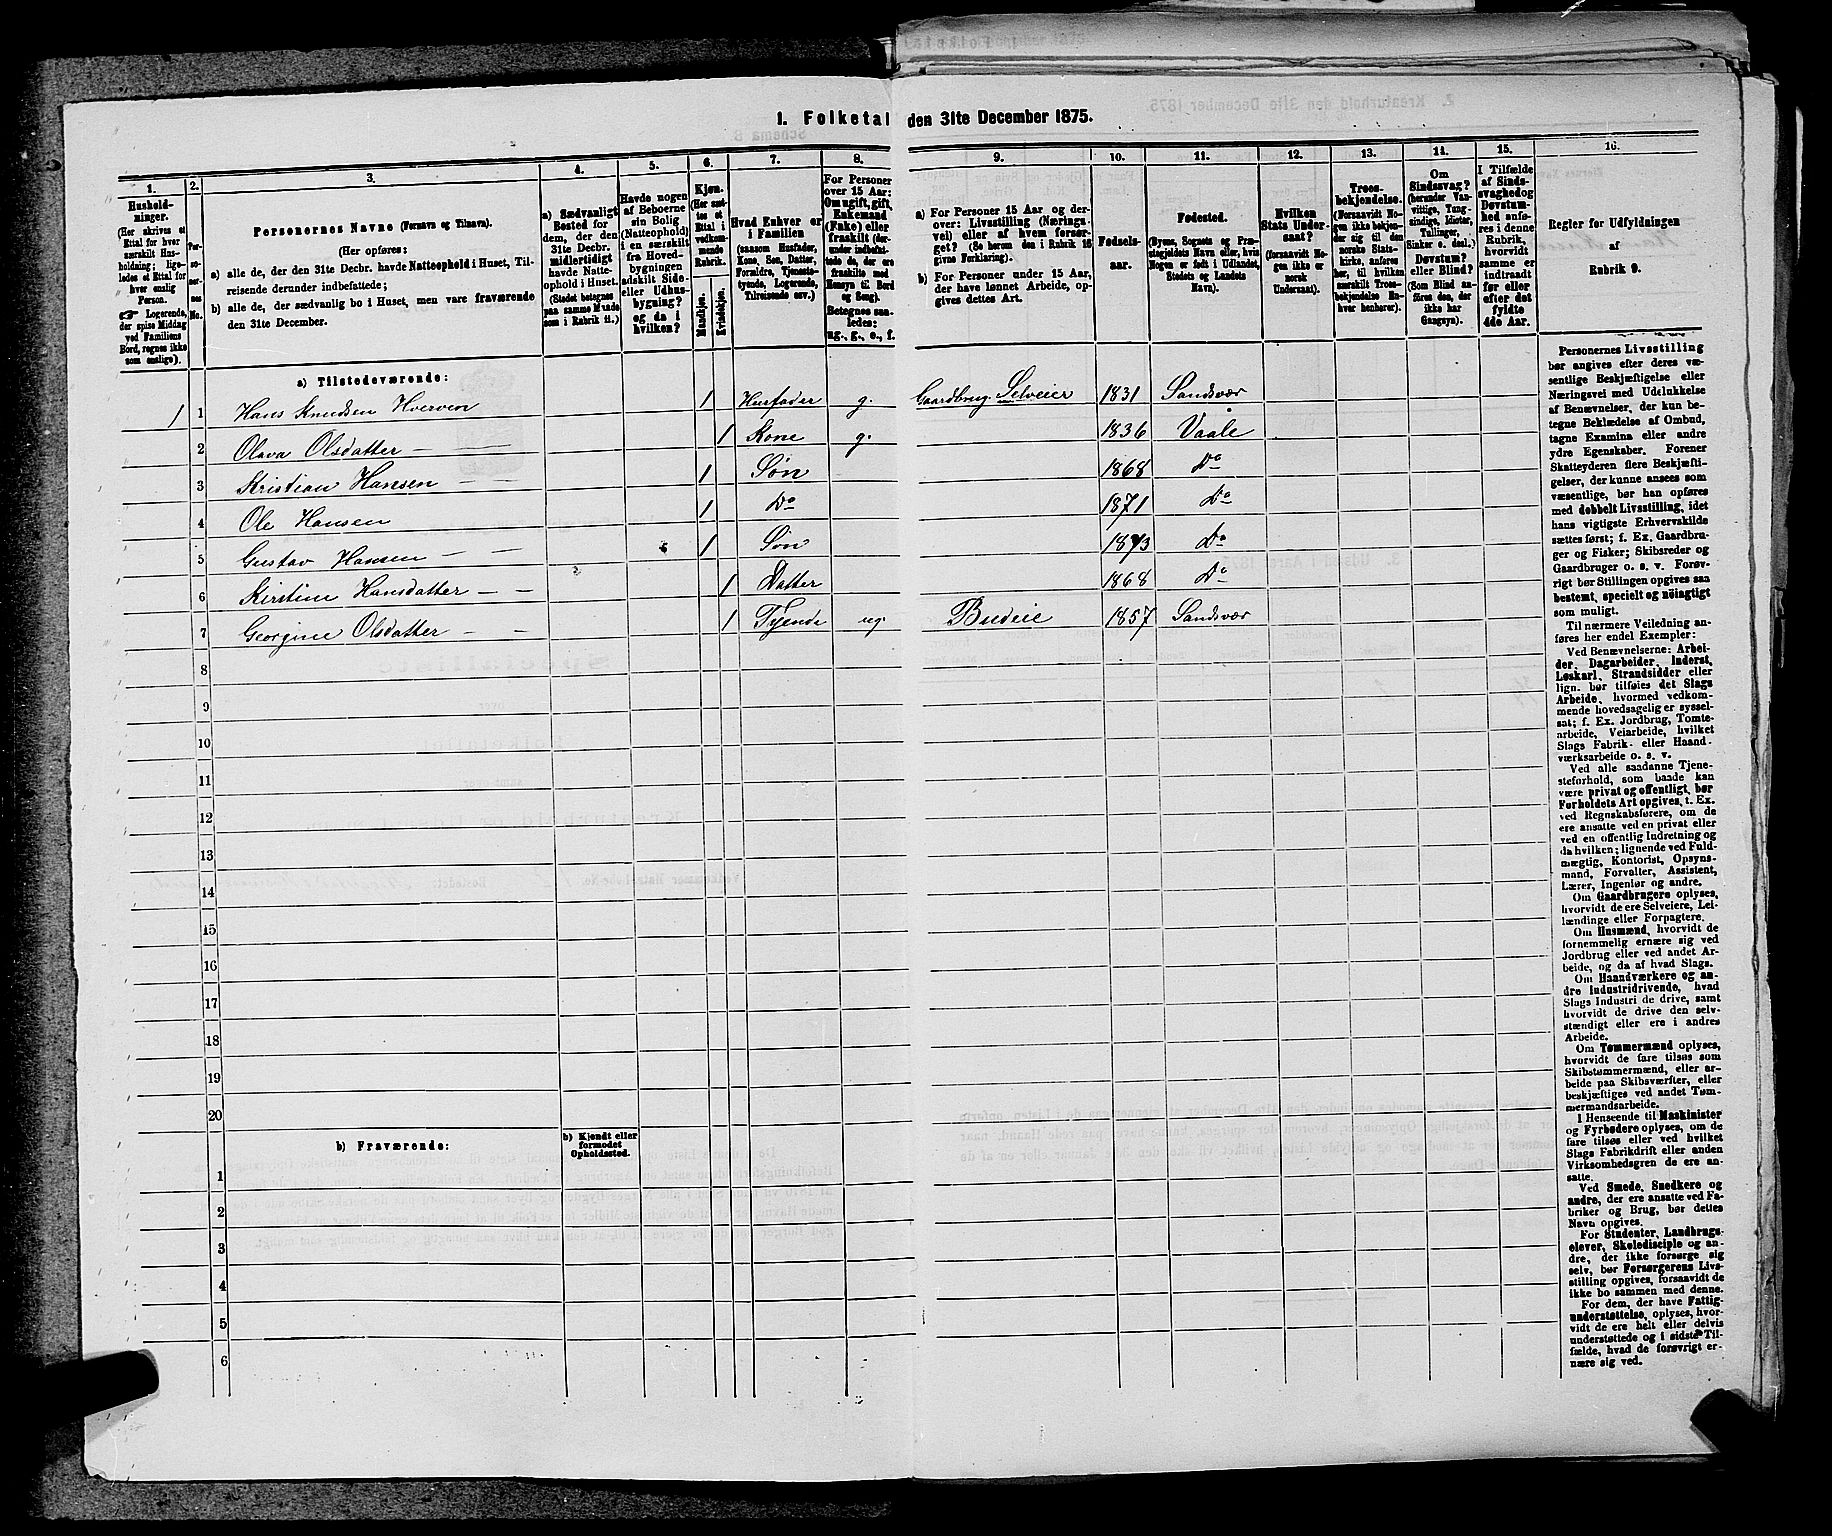 1. Folketal den 31te December 1875.
1. 2. 3. 4. 5. 6. 7. 8. 9. 10. 11. 12. 13. 14. 15. 16.
Hushold-
ninger.
(Her skrives et
Ettal for hver
særskilt Hus-
holdning; lige-
ledes et Ettal for
hver enslig
Person.
☞ Logerende,
der spise Middag
ved Familiens
Bord, regnes ikke
som enslige).
Per-
so-
ner-
nes
No.
Personernes Navne (Fornavn og Tilnavn).
(Her opføres:
a) alle de, der den 31te Decbr. havde Natteophold i Huset, Til-
reisende derunder indbefattede;
b) alle de, der sædvanlig bo i Huset, men vare fraværende
den 31te December.
a) Sædvanligt
Bosted for
dem, der den
31te Decbr.
midlertidigt
havde Natte-
ophold i Huset.
(Stedet betegnes
paa samme Maade
som i Rubrik 11.)
Havde nogen
af Beboerne
sin Bolig
(Natteophold)
i en særskilt
fra Hoved-
bygningen
adskilt Side-
eller Udhus-
bygning?
og da i
hvilken?
Kjøn.
(Her sæt-
tes et
Ettal i
vedkom-
mende
Rubrik.
Mandkjøn.
Kvindekjøn.
Hvad Enhver er
i Familien
(saasom Husfader,
Kone, Søn, Datter,
Forældre, Tjeneste-
tyende, Logerende,
Tilreisende osv.)
For Personer
over 15 Aar:
Om ugift, gift,
Enkemand
(Enke) eller
fraskilt (der-
under indbefat-
tede de, der ere
fraskilte med
Hensyn til Bord
og Seng).
Betegnes saa-
ledes:
ug., g., e., f.
a) For Personer 15 Aar og der-
over: Livsstilling (Nærings-
vei) eller af hvem forsør-
get? (Se herom den i Rubrik 16
givne Forklaring).
b) For Personer under 15 Aar,
der have lønnet Arbeide, op-
gives dettes Art.
Fødsels-
aar.
Fødested.
(Byens, Sognets og Præ-
stegjeldets Navn eller, hvis
Nogen er født i Udlandet,
Stedets og Landets
Navn).
Hvilken
Stats Under-
saat?
(forsaavidt No-
gen ikke er
norsk
Undersaat).
Troes-
bekjendelse.
(Forsaavidt No-
gen ikke bekjen-
der sig til den
norske Stats-
kirke, anføres
her, til hvilken
særskilt Troes-
bekjendelse En-
hver henhører).
Om
Sindssvag?
(herunder Van-
vittige, Tung-
sindige, Idioter,
Tullinger,
Sinker o. desl.)
Døvstum?
eller Blind?
(Som Blind an-
føres den, der
ikke har
Gangsyn).
I Tilfælde
af Sinds-
svaghed og
Døvstum-
hed anfø-
res i denne
Rubrik,
hvorvidt
samme er
indtraadt
før eller
efter det
fyldte
4de Aar.
Regler for Udfyldningen
af
Rubrik 9.
a) Tilstedeværende:
1 1 Hans Knudsen Hverven 1 Husfader g. Gaardbrug. Selveier 1831 Sandsvær
2 Olava Olsdatter — — 1 Kone g. 1836 Vaale
3 Kristian Hansen — — 1 Søn 1868 Do
4 Ole Hansen 1 Do 1871 Do
5 Gustav Hansen — — 1 Søn 1873 Do
6 Kirstine Hansdatter — — 1 Datter 1868 Do
7 Georgine Olsdatter — — 1 Tyende ug. Budeie 1857 Sandsvær
8
9
10
11
12
13
14
15
16
17
18
19
20
b) Fraværende:
b) Kjendt eller
formodet
Opholdssted.
1
2
3
4
5
6
Personernes Livsstilling
bør angives efter deres væ-
sentlige Beskjæftigelse eller
Næringsvei med Udelukkelse
af Benævnelser, der kun be-
tegne Beklædelse af Ombud,
tagne Examina eller andre
ydre Egenskaber. Forener
Skatteyderen flere Beskjæfti-
gelser, der kunne ansees som
væsentlige, bør han opføres
med dobbelt Livsstilling, idet
hans vigtigste Erhvervskilde
sættes først; f. Ex. Gaardbru-
ger og Fisker; Skibsreder og
Gaardbruger o. s. v. Forøv-
rigt bør Stillingen opgives saa
bestemt, specielt og nöiagtigt
som muligt.
Til nærmere Veiledning an-
føres her endel Exempler:
Ved Benævnelserne: Arbei-
der, Dagarbeider, Inderst,
Løskarl, Strandsidder eller
lign. bør tilføies det Slags
Arbeide, hvormed vedkom-
mende hovedsagelig er syssel-
sat; f. Ex. Jordbrug, Tomte-
arbeide, Veiarbeide, hvilket
Slags Fabrik- eller Haand-
værksarbeide o. s. v.
Ved alle saadanne Tjene-
steforhold, som baade kan
være privat og offentligt, bør
Forholdets Art opgives, t. Ex.
ved Regnskabsførere, om de
ere ansatte ved en privat eller
ved en offentlig Indretning og
da hvilken; lignende ved Fuld-
mægtig, Kontorist, Opsyns-
mand, Forvalter, Assistent,
Lærer, Ingeniør og andre.
Om Gaardbrugere oplyses,
hvorvidt de ere Selveiere, Lei-
lændinge eller Forpagtere.
Om Husmænd, hvorvidt de
fornemmelig ernære sig ved
Jordbrug eller ved andet Ar-
beide, og da af hvad Slags.
Om Haandværkere og an-
dre Industridrivende, hvad
Slags Industri de drive, samt
hvorvidt de drive den selv-
stændigt eller ere i andres
Arbeide.
Om Tømmermænd oplyses,
hvorvidt de fare tilsøs som
Skibstømmermænd, eller ar-
beide paa Skibsværfter, eller
beskjæftiges ved andet Tøm-
mermandsarbeide.
I Henseende til Maskinister
og Fyrbødere oplyses, om de
fare tilsøs eller ved hvilket
Slags Fabrikdrift eller anden
Virksomhedsgren de ere an-
satte.
Ved Smede, Snedkere og
andre, der ere ansatte ved Fa-
briker og Brug, bør dettes
Navn opgives.
For Studenter, Landbrugs-
elever, Skoledisciple og an-
dre, der ikke forsørge sig
selv, bør Forsørgerens Livs-
stilling opgives, forsaavidt de
ikke bo sammen med denne.
For dem, der have Fattig-
understøttelse, oplyses, hvor-
vidt de ere helt eller delvis
understøttede og i sidste Til-
fælde, hvad de forøvrigt er-
nære sig ved.